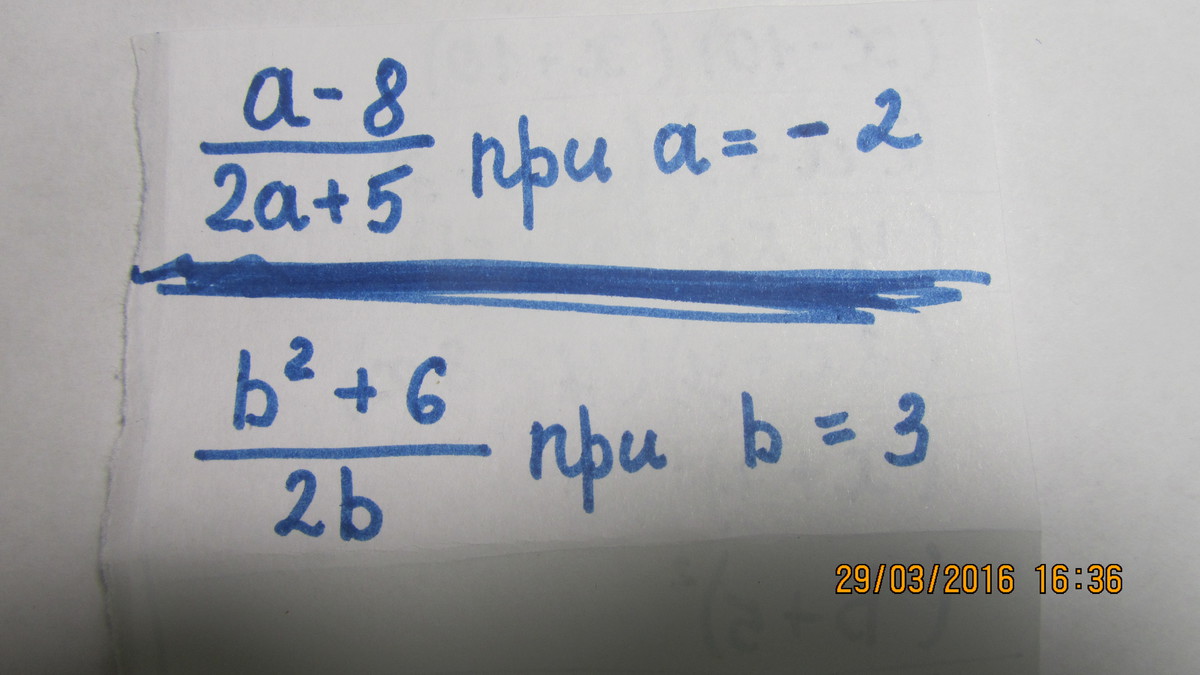 a - 8
2a + 5 при a = - 2
b² + 6
2b при b = 3
29/03/2016 16:36